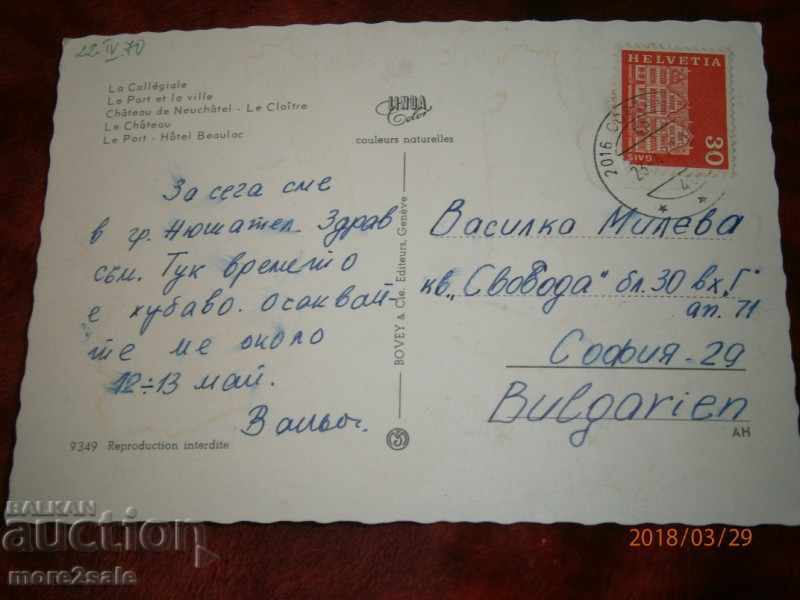 22 IV 70
La Collégiale
Le Port et la ville
Château de Neuchâtel - Le Cloître
Le Château
Le Port - Hôtel Beaulac
LINDA
Color
couleurs naturelles
HELVETIA
30
GAIS
2016
За сега сме
в гр. Нюшател Здрав
съм. Тук времето
е хубаво. Осаквай-
те ме около
12÷13 май.
Вальо.
BOVEY & Cie, Editeurs, Genève
Василка Милева
кв. „Свобода" бл. 30 вх. Г
ап. 71
София - 29
Bulgarien
AH
9349 Reproduction interdite
BALKAN
auction
more2sale
2018/03/29